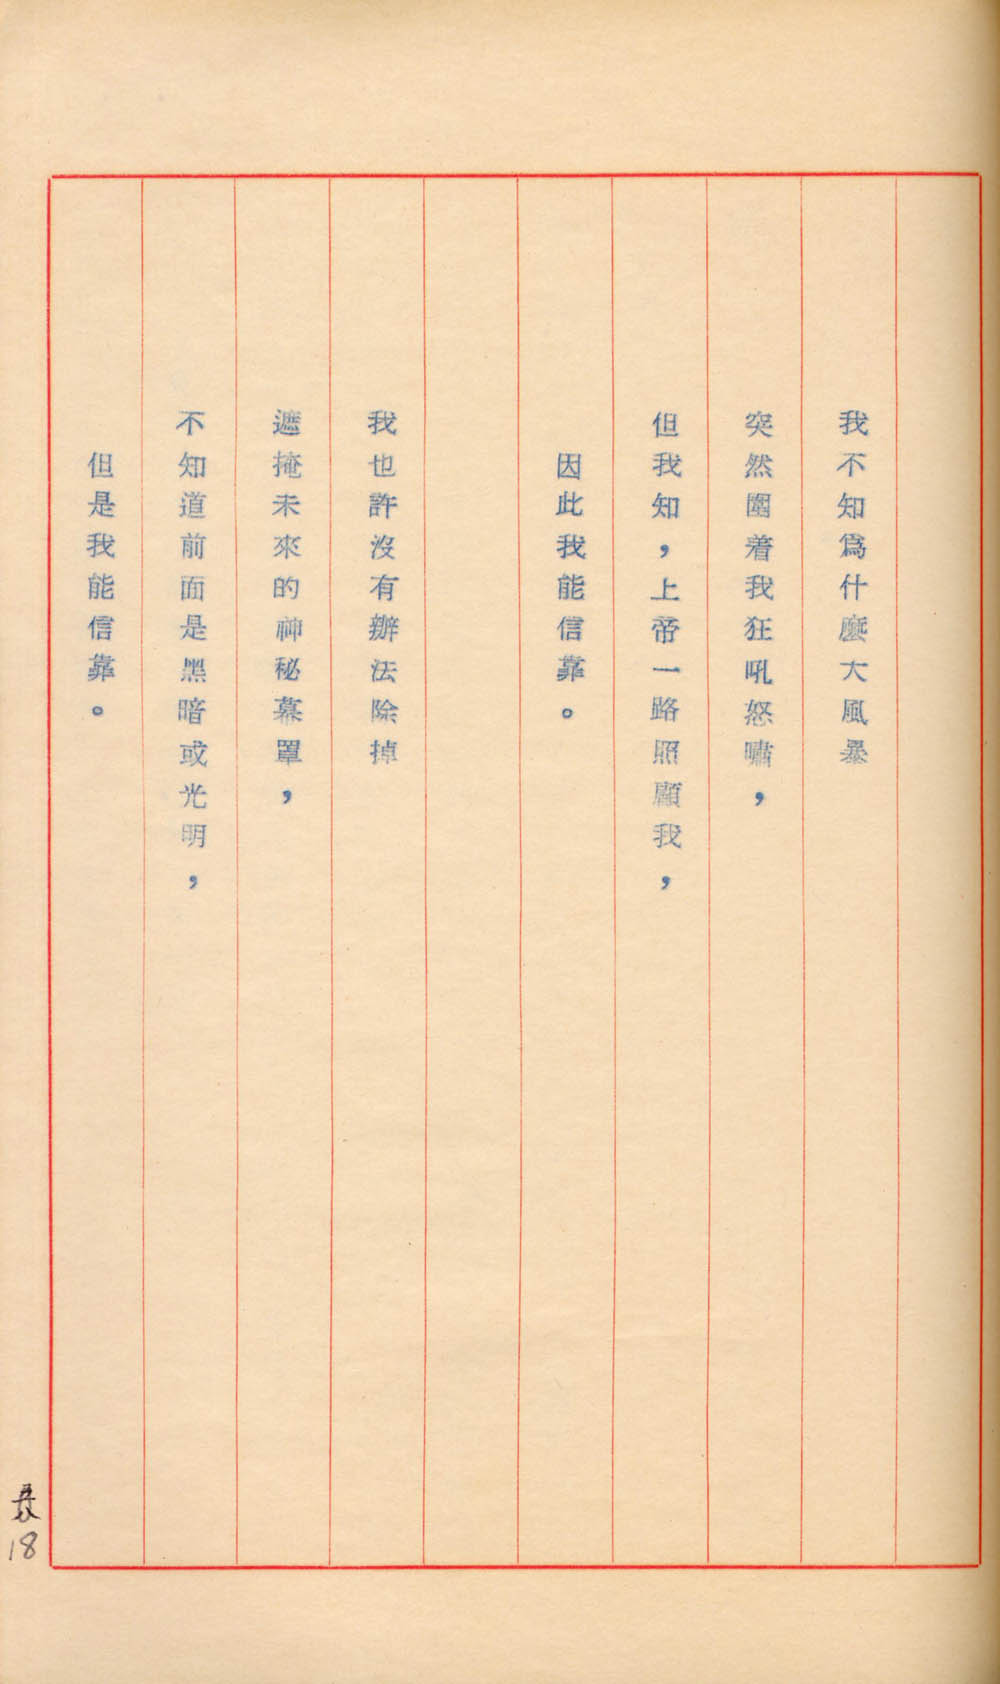 我不知爲什麼大風暴
突然圍着我狂吼怒嘯，
但我知，上帝一路照顧我，
因此我能信靠。
我也許沒有辦法除掉
遮掩未來的神秘幕罩，
不知道前面是黑暗或光明，
但是我能信靠。
18